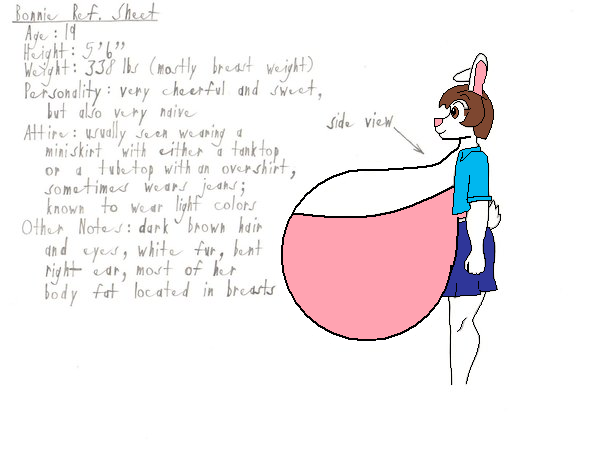 Bonnie Ref. Sheet
Age: 19
Height: 5'6"
Weight: 338 lbs (mostly breast weight)
Personality: very cheerful and sweet,
but also very naive
Attire: usually seen wearing a
miniskirt with either a tanktop
or a tubetop with an overshirt,
sometimes wears jeans;
known to wear light colors
Other Notes: dark brown hair
and eyes, white fur, bent
right ear, most of her
body fat located in breasts
side view